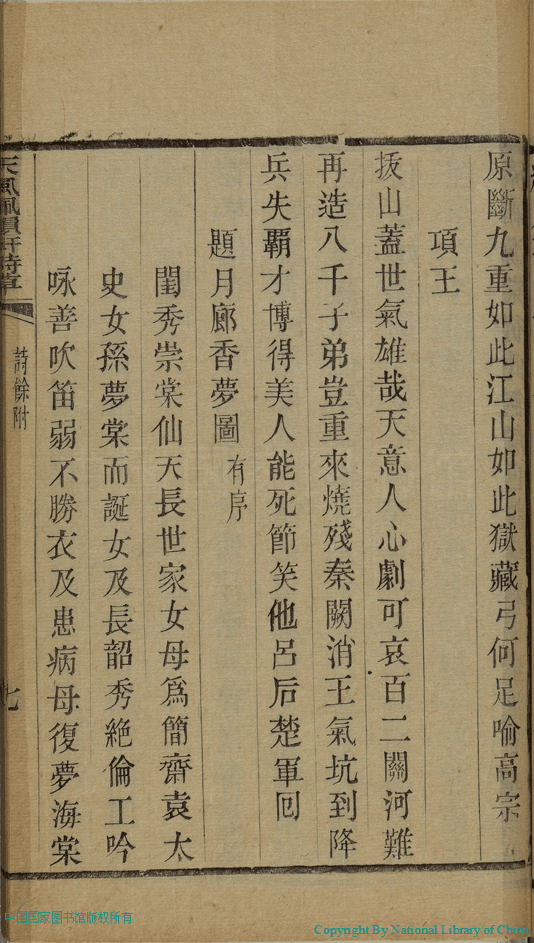 原斷九重如此江山如此獄藏弓何足喻高宗
項王
拔山蓋世氣雄哉天意人心劇可哀百二關河難
再造八千子弟豈重來燒殘秦闕消王氣坑到降
兵失覇才博得美人能死節笑他呂后楚軍回
題月廊香夢圖 有序
閨秀崇棠仙天長世家女母爲簡齋袁太
史女孫夢棠而誕女及長韶秀絶倫工吟
咏善吹笛弱不勝衣及患病母復夢海棠
詩餘附
七
中国国家图书馆版权所有
Copyright By National Library of China